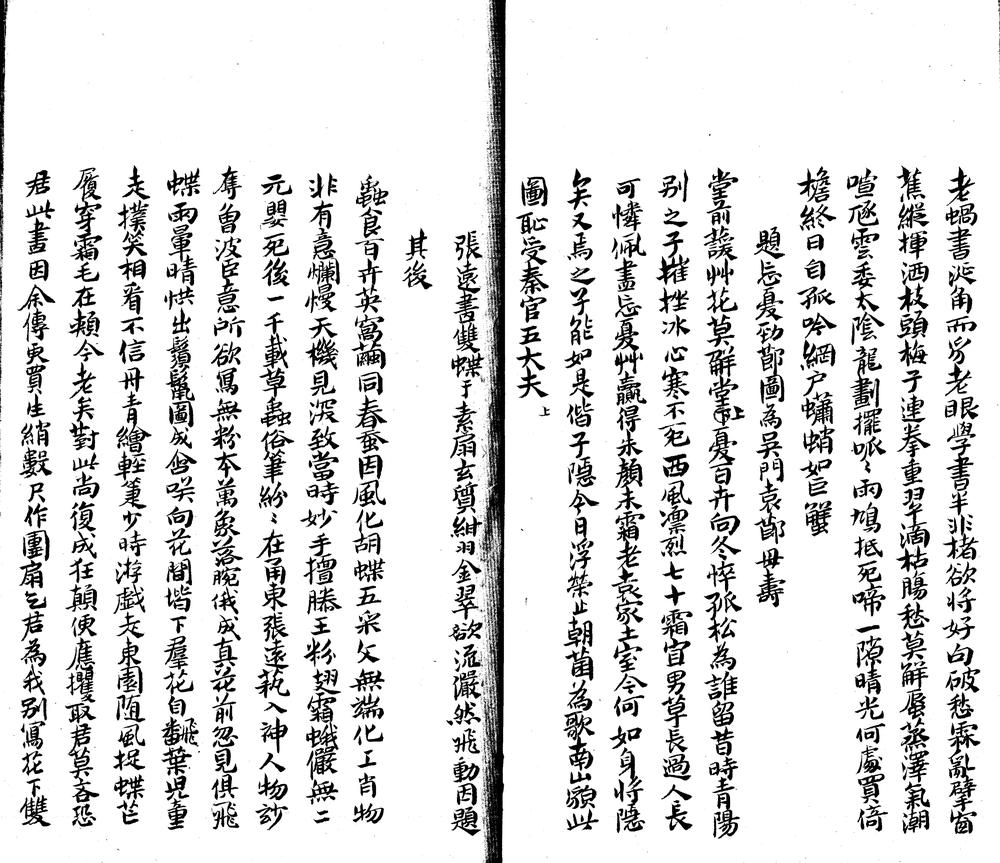 老蝸書涎角而ㄢ老眼學書半非楮欲將好句破愁霖亂擘窗
蕉縱揮洒枝頭梅子連拳重翠滴枯腸愁莫解唇蒸澤氣潮
喧豗雲委太陰龍劃擺哌〻雨鳩抵死啼一隙晴光何處買倚
檐終日自孤吟網户蠨蛸如巨蟹
題忘憂勁節圖為吴門袁節母壽
堂前諼艸花莫解堂上憂百卉向冬悴孤松為誰留昔時青陽
别之子摧挫冰心寒不死西風凛烈七十霜宜男草長過人長
可憐佩盡忘憂艸贏得朱顔未霜老袁家土室今何如身將隱
矣又焉之子能如是偕子隱今日浮榮止朝菌為歌南山願此
圖恥受秦官五大夫上
張遠畫雙蝶于素扇玄質紺羽金翠欲流儼然飛動因題
其後
蟲食百卉英窩繭同春蚕因風化胡蝶五采文無端化工肖物
非有意爛慢天機見深致當時妙手擅滕王粉翅霜蛾儼無二
元嬰死後一千載草蟲俗筆紛〻在甬東張遠蓺入神人物妙
奪曾波臣意所欲寫無粉本萬象落腕俄成真花前忽見俱飛
蝶雨暈晴烘出鬚鬣圖成含咲向花間堦下羣花自飜葉児童
走撲笑相看不信丹青繪輕箑少時游戲走東園随風捉蝶芒
履穿霜毛在頰今老矣對此尚復成狂顛便應攫取君莫吝恐
君此畫因余傳更買生綃數尺作團扇乞君為我别寫花下雙